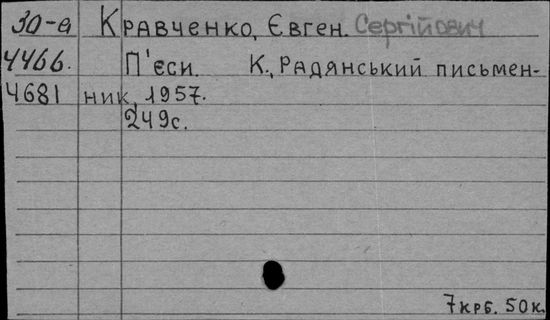 30-а Кравченко, Євген. Сергійович
4466. П'єси. К., Радянський письмен-
4681 ник, 1957.
249с.
7крб. 50к.